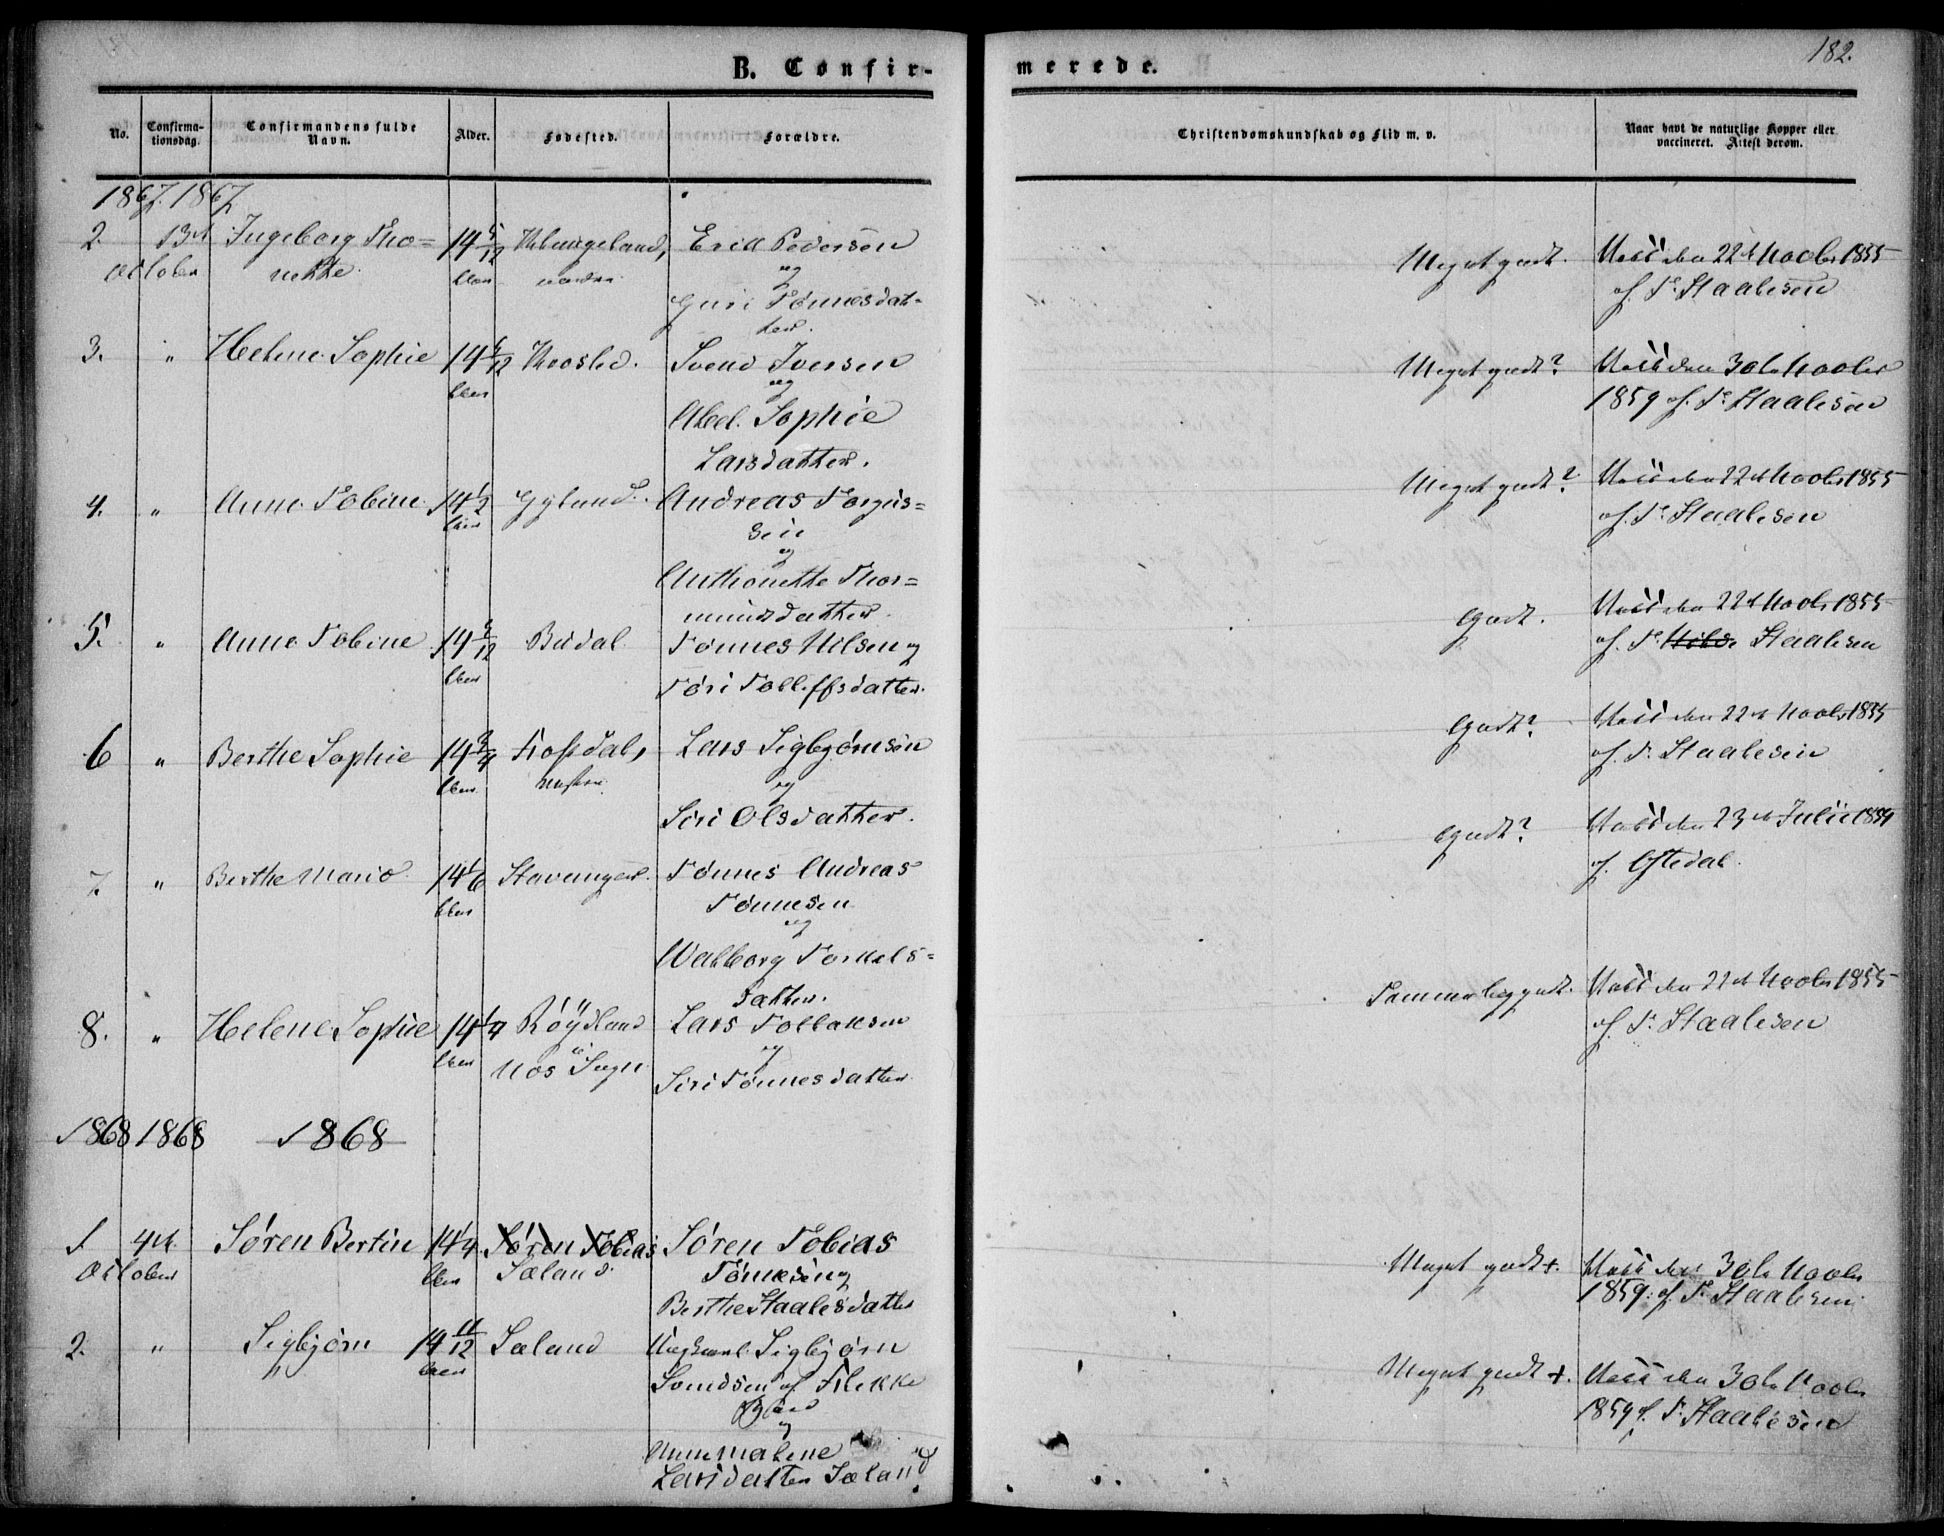 182.
B. Confirmerede.
No. Confirmationsdag. Confirmandens fulde Navn. Alder. Fødested. Forældre. Christendomskundskab og Flid m. v. Naar havt de naturlige Kopper eller vaccineret. Attest derom.
1867. 1867
2. 13de October Ingeborg Tho=
nette. 14 5/12 Erik Pedersen
og
Guri Tønnesdat-
ter. Meget godt. Vacc. den 22de Novbr 1855
af T. Staalesen
3. " Helene Sophie 14 Svend Iversen
og
Abel Sophie
Larsdatter. Meget godt? Vacc. den 30te Novbr
1859 af T. Staalesen
4. " Anne Tobine 14 1/2 Gyland Andreas Torgius=
sen
og
Anthonette Thor=
mundsdatter. Meget godt? Vacc. den 22de Novbr 1855
af T. Staalesen
5. " Anne Tobine 14 5/12 Budal Tønnes Nilsen og
Tøri Tollefsdatter. Godt. Vacc. den 22de Novbr 1855
af T. Staalesen
6 " Berthe Sophie 14 3/4 Lars Sigbjørnsen
og
Siri Olsdatter. Godt? Vacc. den 22de Novbr 1855
af T. Staalesen
7. " Berthe Marie 14 1/6 Stavanger. Tønnes Andreas
Tønnesen
og
Walborg Torkels=
datter. Godt? Vacc. den 23de Julii
af Oftedal.
8. " Helene Sophie 14 1/4 Røÿdland
i Sogn Lars Tollaksen
og
Siri Tønnesdatter Temmelig godt. Vacc. den 22de Novbr 1855
af T. Staalesen
1868 1868 1868
1. 4de October Søren Bertin 14 1/4 Søren Tobias
Sæland. Søren Tobias
Tønnesen og
Berthe Staalesdatter Meget godt +. Vacc. den 30te Novbr
1859. af T. Staalesen
2. " Sigbjørn 14 11/12 Sæland Ungkarl Sigbjørn
Svendsen af Flikke
og
Anne Malene
Larsdatter Sæland Meget godt +. Vacc. den 30te Novbr
1859 f. T. Staalesen